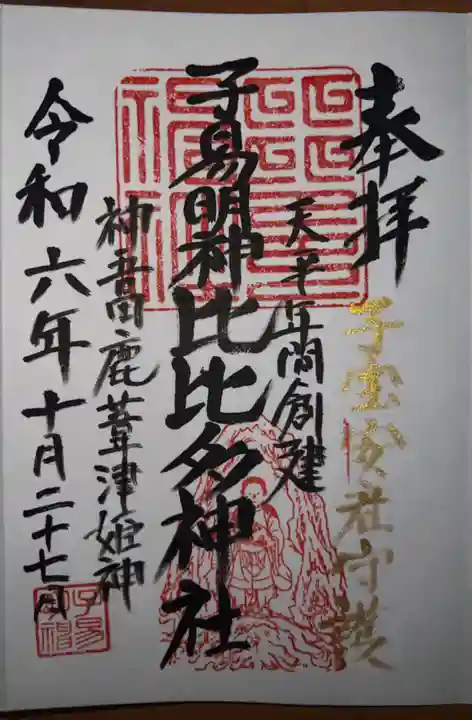 奉拝
子宝安社守護
天平年間創建
子易明神比比多神社
神吾鹿葦津姫神
令和六年十月二十七日
子易